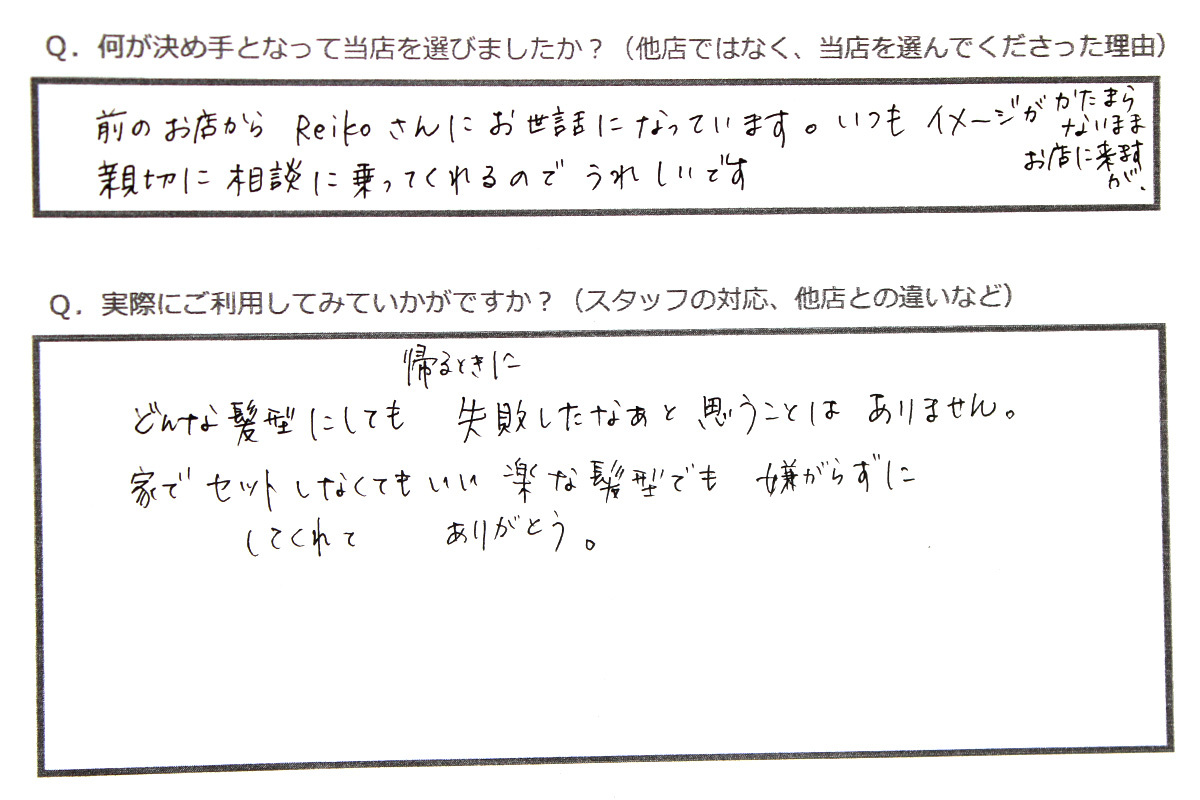 Q．何が決め手となって当店を選びましたか？（他店ではなく、当店を選んでくださった理由）
前のお店から Reikoさんにお世話になっています。いつも イメージが かたまら
ないまま
お店に来ます
が、
親切に相談に乗ってくれるので うれしいです
Q．実際にご利用してみていかがですか？（スタッフの対応、他店との違いなど）
帰るときに
どんな髪型にしても 失敗したなぁと思うことは ありません。
家で セットしなくてもいい 楽な髪型でも 嫌がらずに
してくれて ありがとう。